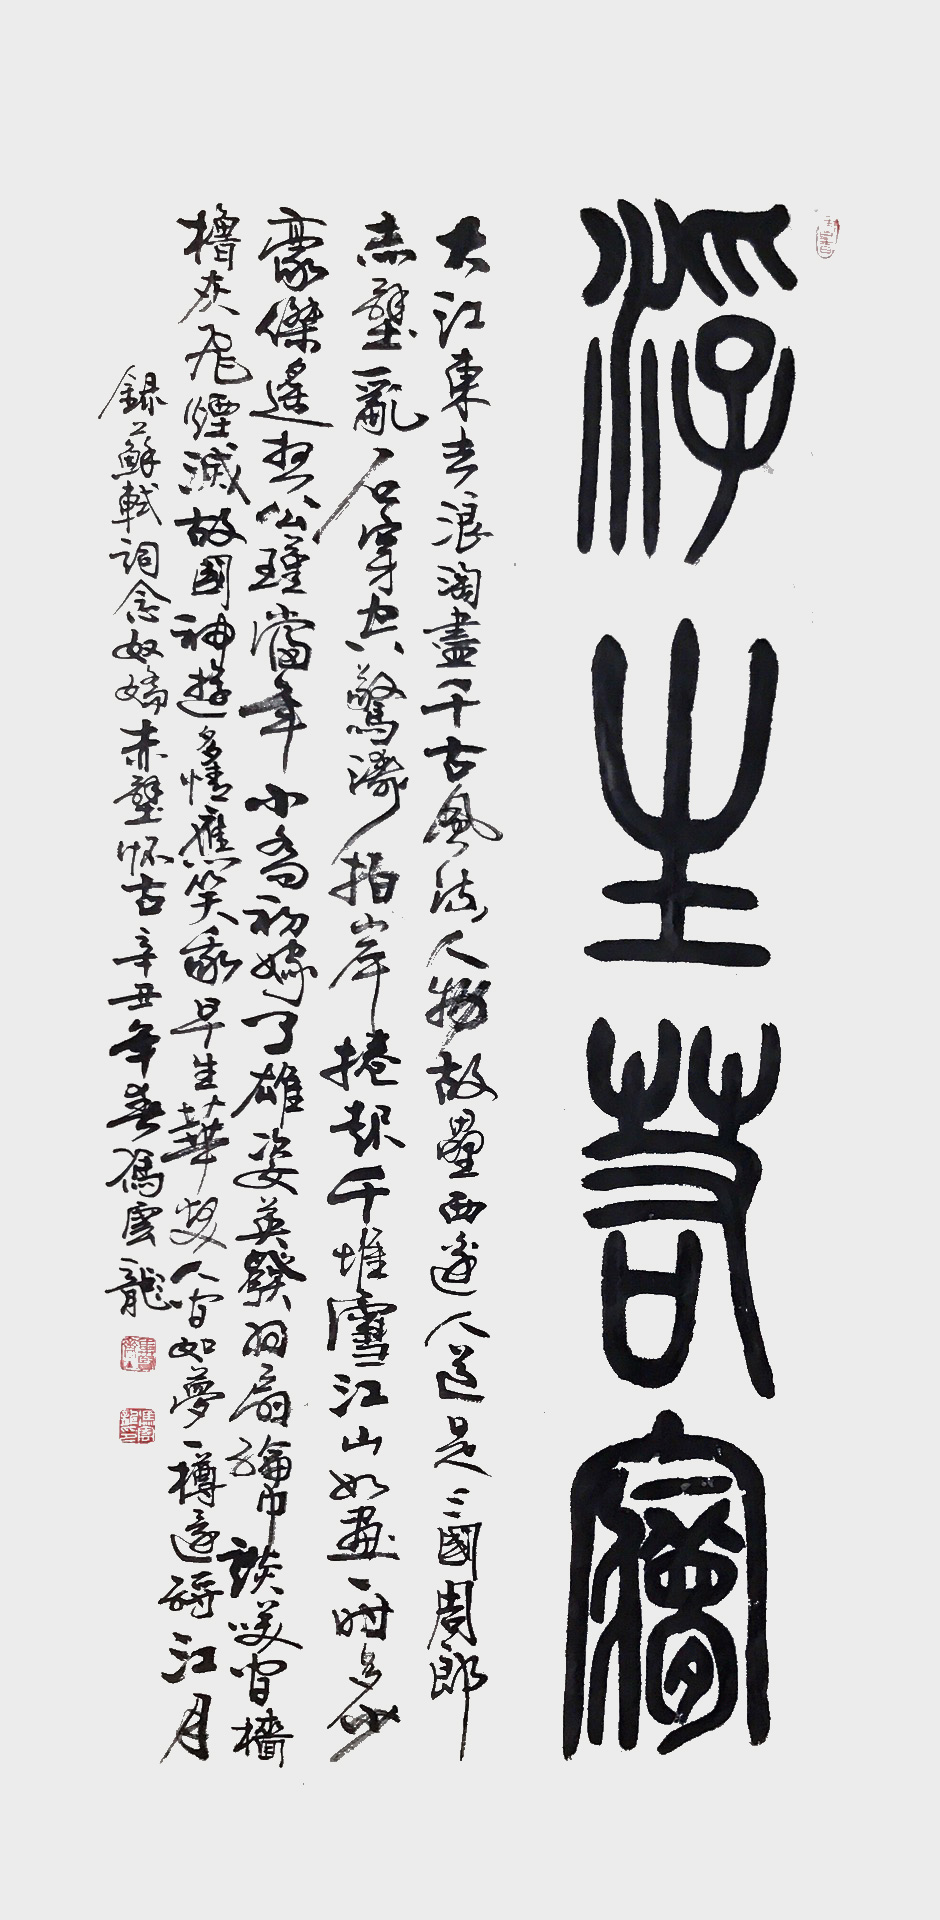 浮生若夢
大江東去浪淘盡千古風流人物故壘西邊人道是三國周郎
赤壁亂石穿空驚濤拍岸捲起千堆雪江山如畫一時多少
豪傑遙想公瑾當年小喬初嫁了雄姿英發羽扇綸巾談咲間檣
櫓灰飛煙滅故國神遊多情應笑我早生華髮人間如夢一樽還酹江月
錄蘇軾詞念奴嬌赤壁怀古辛丑年春馮雲龍